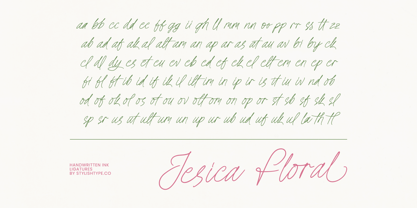 aa bb cc dd ee ff gg ii gh ll mm nn oo pp rr ss tt zz
ab ad af ak al alt am an ap ar as at au av bi by ck
cl dl dy es et eu ev eb ed ef ek el elt em en ep er
fi fl ft ib id if ik il ilt im in ip ir is it iu iw nd ob
od of ok ol os ot ou ov olt om on op or st sb sf sk sl
sp sr us at ult um un up ur ub ud uf uk ul la th tt
HANDWRITTEN INK
LIGATURES
BY STYLISHTYPE.CO
Jesica Floral